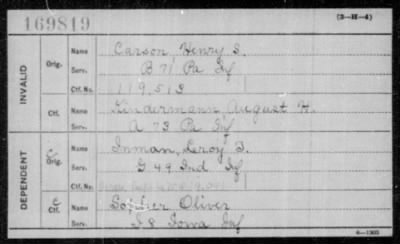 169819
(3-H-4)
INVALID
Orig.
Name Carson, Henry S.
Serv. B 71 Pa Inf
Ctf. No. 119,513
Ctf.
Name Kindermann, August H.
Serv. A 73 Pa Inf
DEPENDENT
C
Orig.
Name Inman, Leroy T.
Serv. G 49 Ind Inf
Ctf. No.
C
Ctf.
Name Oliver
Serv. I 8 Iowa Inf
6-1303